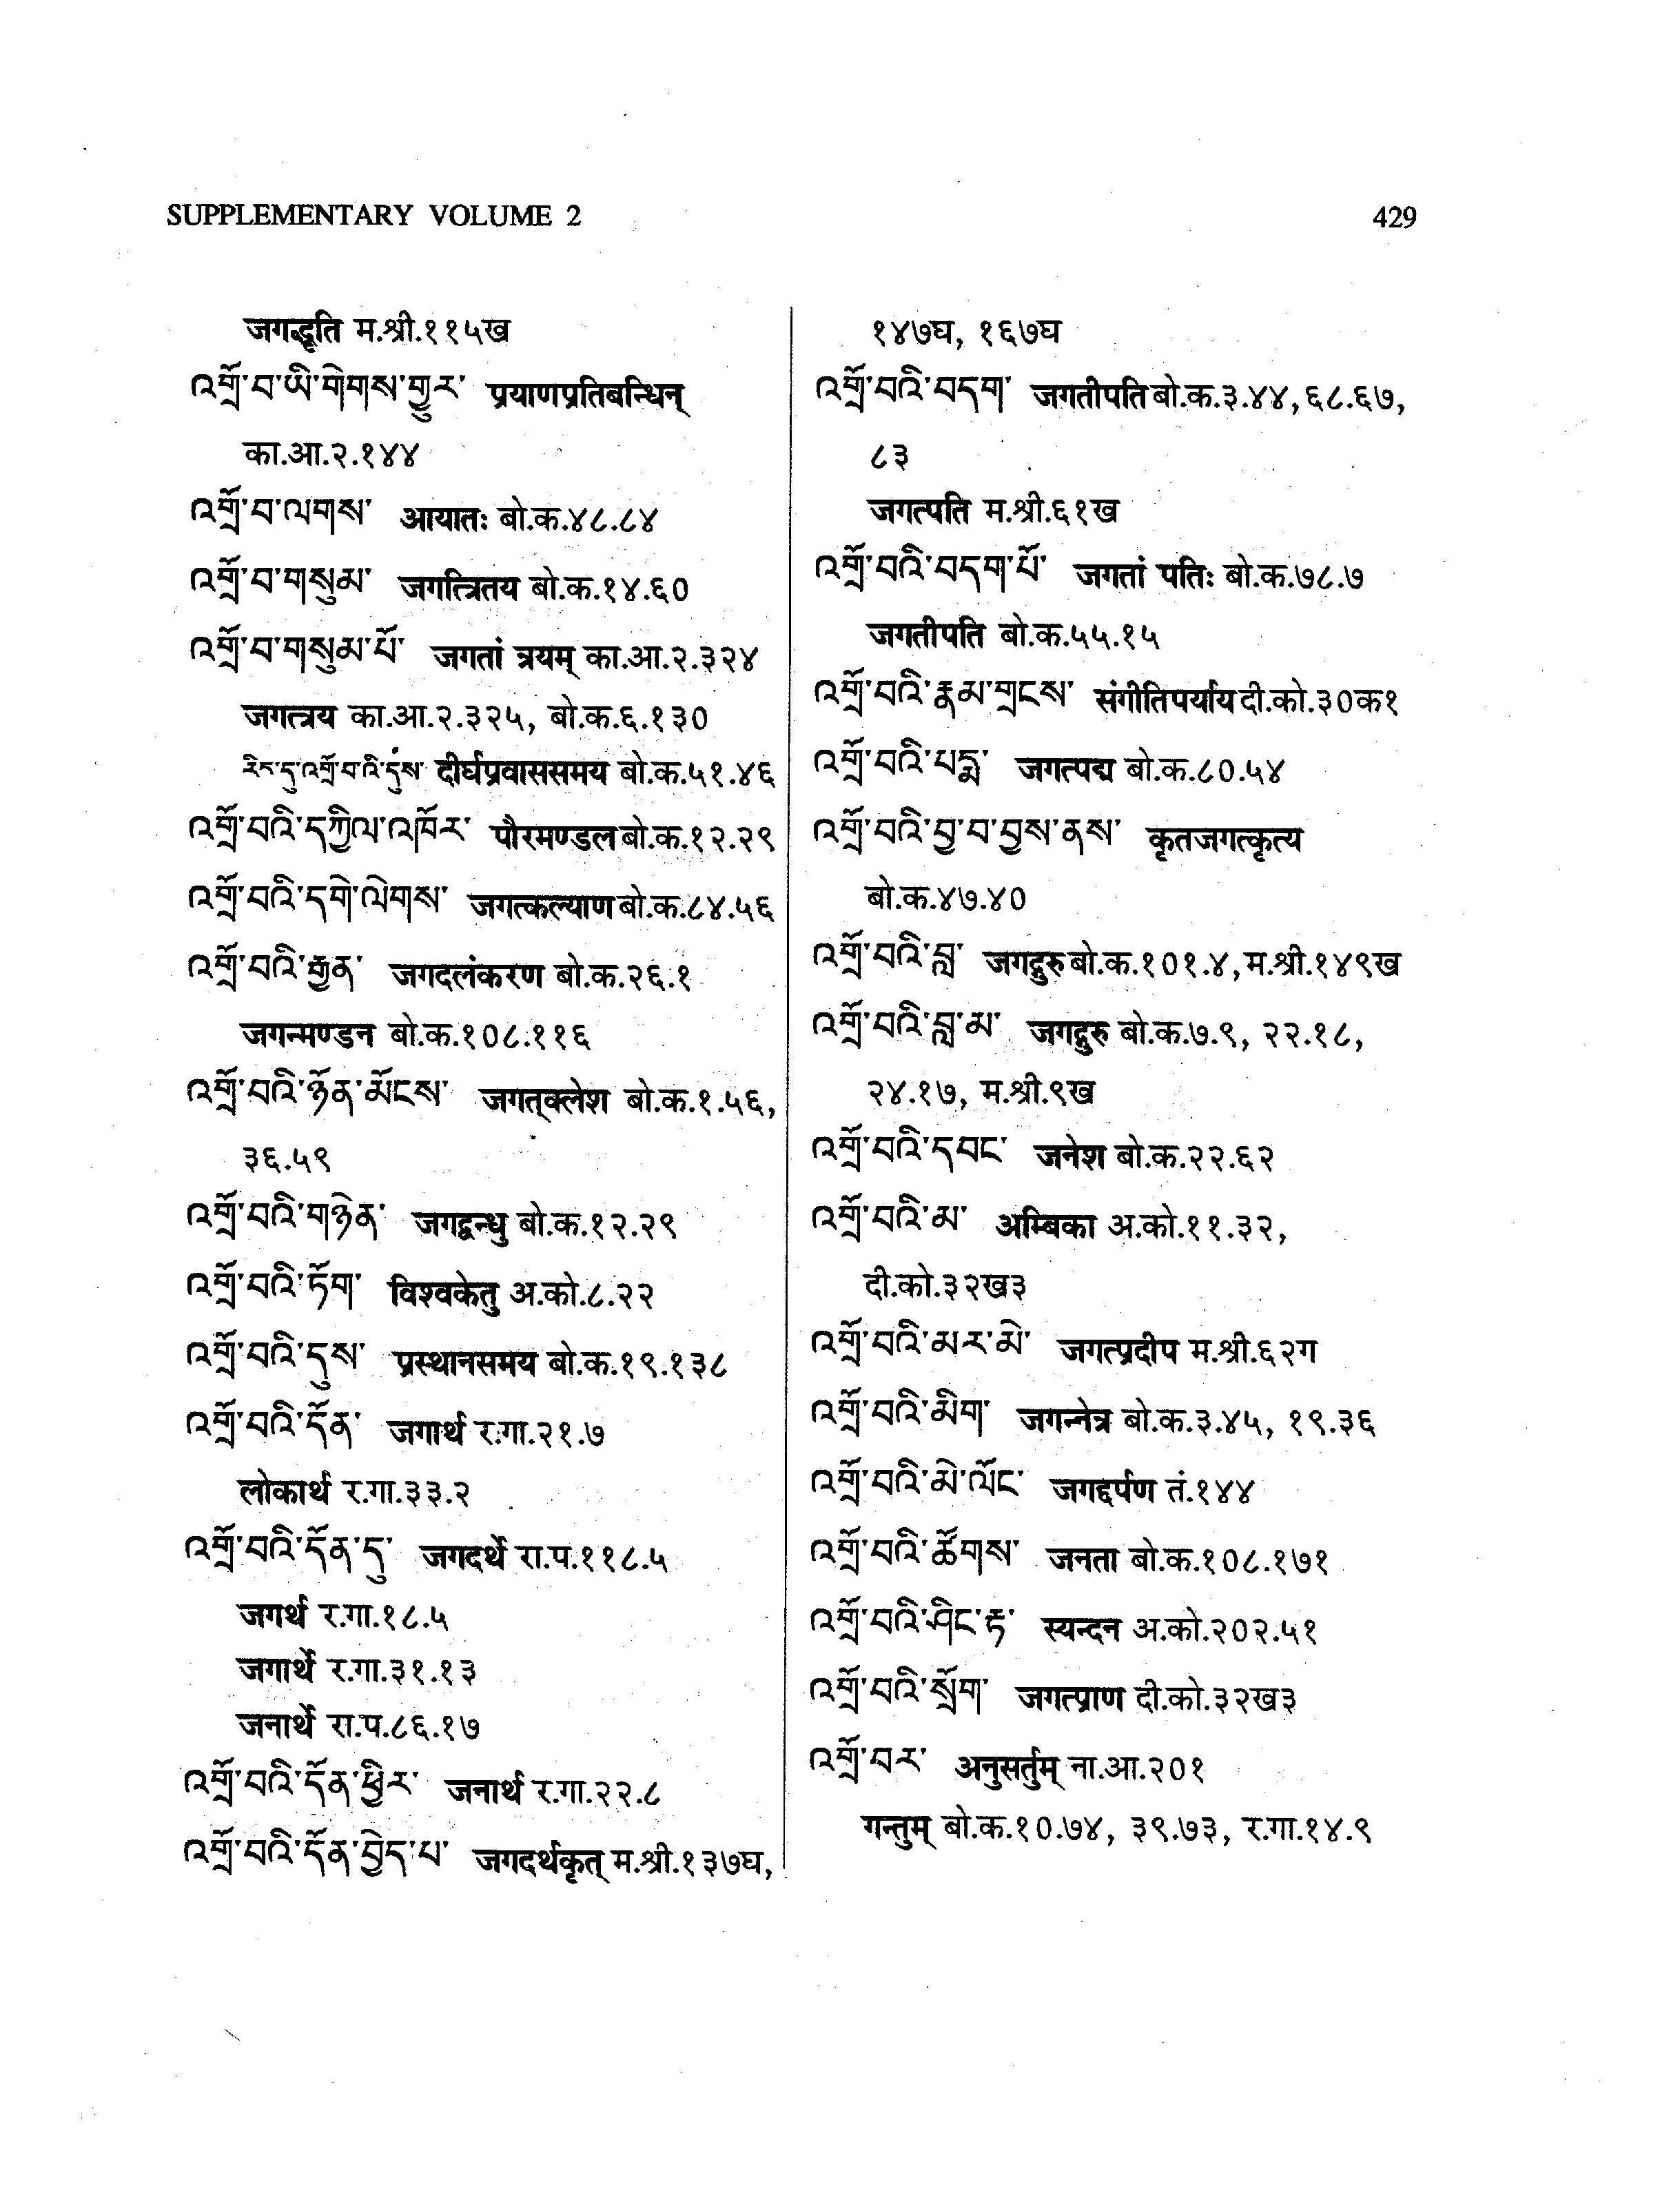 SUPPLEMENTARY VOLUME 2 429
जगद्धृति म.श्री.११५ख
འགྲོ་བ་ཡི་གེགས་གྱུར་ प्रयाणप्रतिबन्धिन्
का.आ.२.१४४
འགྲོ་བ་ལགས་ आयातः बो.क.४८.८४
འགྲོ་བ་གསུམ་ जगत्त्रितय बो.क.१४.६०
འགྲོ་བ་གསུམ་པོ་ जगतां त्रयम् का.आ.२.३२४
जगत्त्रय का.आ.२.३२५, बो.क.६.१३०
རིང་དུ་འགྲོ་བ་འི་དུས་ दीर्घप्रवाससमय बो.क.५१.४६
འགྲོ་བའི་དཀྱིལ་འཁོར་ पौरमण्डल बो.क.१२.२९
འགྲོ་བའི་དགེ་ལེགས་ जगत्कल्याण बो.क.८४.५६
འགྲོ་བའི་རྒྱན་ जगदलंकरण बो.क.२६.१
जगन्मण्डन बो.क.१०८.११६
འགྲོ་བའི་ཉོན་མོངས་ जगत्‌क्लेश बो.क.१.५६,
३६.५९
འགྲོ་བའི་གཉེན་ जगद्बन्धु बो.क.१२.२९
འགྲོ་བའི་ཏོག་ विश्वकेतु अ.को.८.२२
འགྲོ་བའི་དུས་ प्रस्थानसमय बो.क.१९.१३८
འགྲོ་བའི་དོན་ जगार्थ र.गा.२१.७
लोकार्थ र.गा.३३.२
འགྲོ་བའི་དོན་དུ་ जगदर्थे रा.प.११८.५
जगर्थ र.गा.१८.५
जगार्थे र.गा.३१.१३
जनार्थे रा.प.८६.१७
འགྲོ་བའི་དོན་ཕྱིར་ जनार्थ र.गा.२२.८
འགྲོ་བའི་དོན་བྱེད་པ་ जगदर्थकृत् म.श्री.१३७घ,
१४७घ, १६७घ
འགྲོ་བའི་བདག་ जगतीपति बो.क.३.४४,६८.६७,
८३
जगत्पति म.श्री.६१ख
འགྲོ་བའི་བདག་པོ་ जगतां पतिः बो.क.७८.७
जगतीपति बो.क.५५.१५
འགྲོ་བའི་རྣམ་གྲངས་ संगीतिपर्याय दी.को.३०क१
འགྲོ་བའི་པདྨ་ जगत्पद्म बो.क.८०.५४
འགྲོ་བའི་བྱ་བ་བྱས་ནས་ कृतजगत्कृत्य
बो.क.४७.४०
འགྲོ་བའི་བླ་ जगद्गुरु बो.क.१०१.४,म.श्री.१४९ख
འགྲོ་བའི་བླ་མ་ जगद्गुरु बो.क.७.९, २२.१८,
२४.१७, म.श्री.९ख
འགྲོ་བའི་དབང་ जनेश बो.क.२२.६२
འགྲོ་བའི་མ་ अम्बिका अ.को.११.३२,
दी.को.३२ख३
འགྲོ་བའི་མར་མེ་ जगत्प्रदीप म.श्री.६२ग
འགྲོ་བའི་མིག་ जगन्नेत्र बो.क.३.४५, १९.३६
འགྲོ་བའི་མེ་ལོང་ जगद्दर्पण तं.१४४
འགྲོ་བའི་ཚོགས་ जनता बो.क.१०८.१७१
འགྲོ་བའི་ཤིང་རྟ་ स्यन्दन अ.को.२०२.५१
འགྲོ་བའི་སྲོག་ जगत्प्राण दी.को.३२ख३
འགྲོ་བར་ अनुसर्तुम् ना.आ.२०१
गन्तुम् बो.क.१०.७४, ३९.७३, र.गा.१४.९